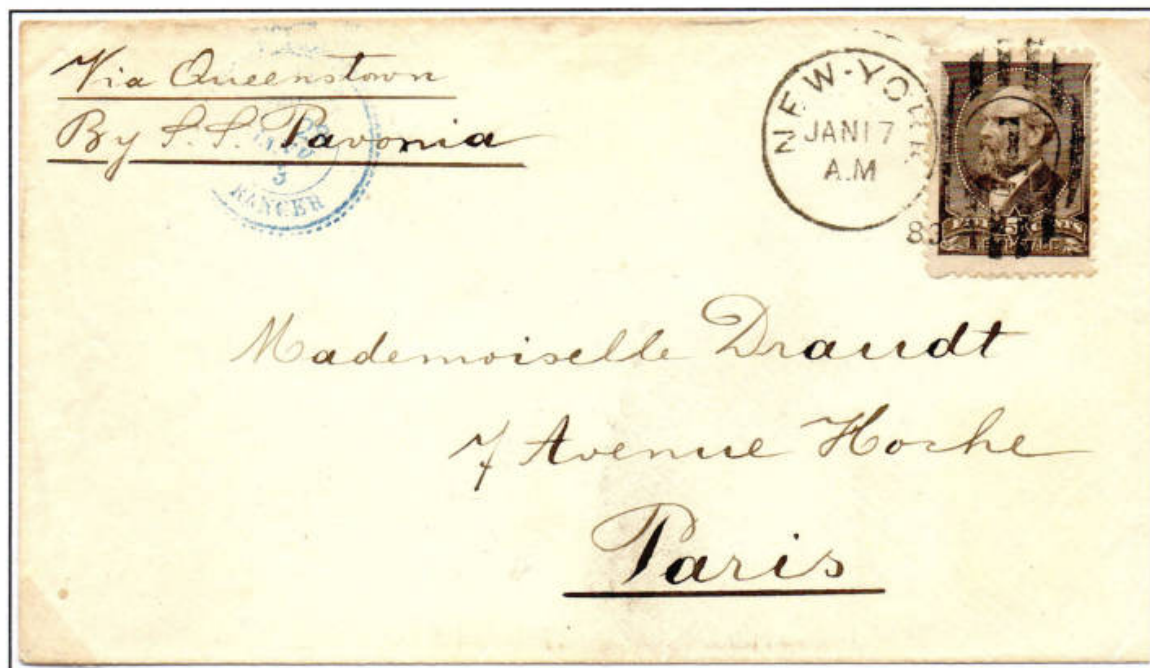 Via Queenstown
By S.S. Pavonia
ETRANGER
3
NEW-YORK
JAN 17
A.M
83
1
5 CENTS
Mademoiselle Drandt
7 Avenue Hoche
Paris